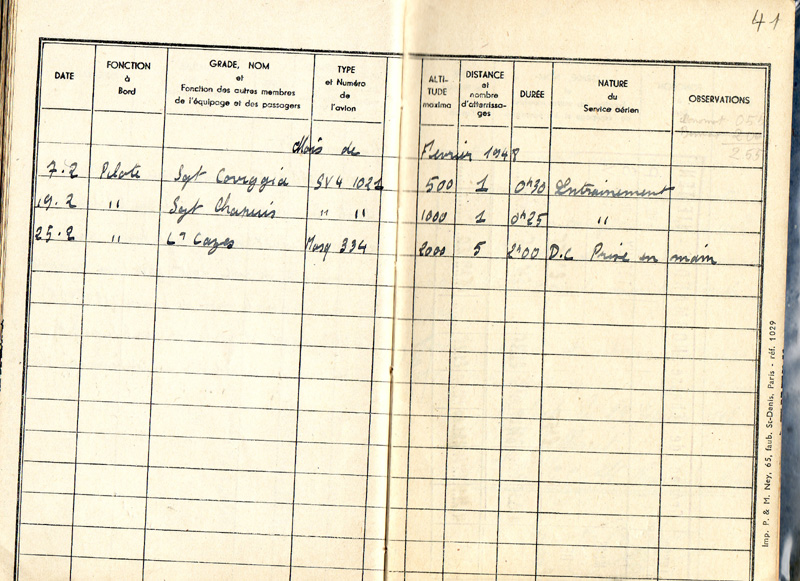 41
DATE
FONCTION à Bord
GRADE, NOM et Fonction des autres membres de l'équipage et des passagers
TYPE et Numéro de l'avion
ALTI-TUDE maxima
DISTANCE et nombre d'atterrissa-ges
DURÉE
NATURE du Service aérien
OBSERVATIONS
Mois de Février 1948
7.2 Pilote Sgt Corriggia SV4 1021 500 1 0h30 Entrainement
19.2 " Sgt " " 1000 1 0h25 "
25.2 " Lt Cazes 334 2000 5 2h00 D.C Prise en main
Imp. P. & M. Ney, 65, faub. St-Denis, Paris - réf. 1029